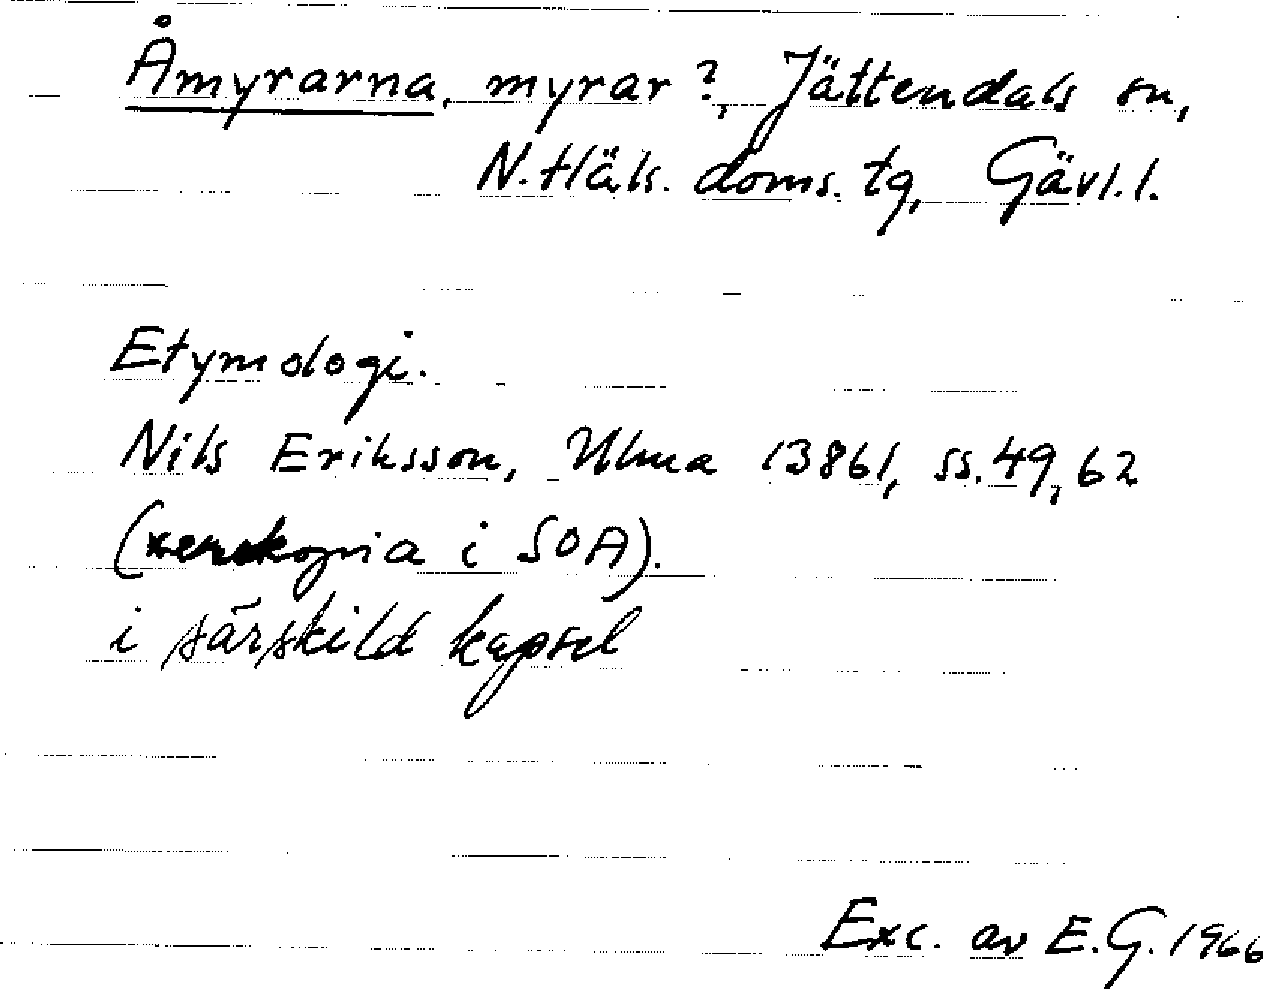 Åmyrarna, myrar?, Jättendals sn,
N. Häls. doms. tg, Gävl. l.
Etymologi.
Nils Eriksson, Ulma 13861, ss. 49, 62
(xerokopia i SOA).
i särskild kapsel
Exc. av E. G. 1966